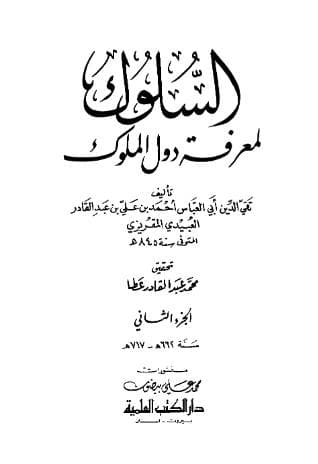 السلوك
لمعرفة دول الملوك
تأليف
تقي الدين أبي العباس أحمد بن علي بن عبد القادر
العبيدي المقريزي
المتوفى سنة ٨٤٥ هـ
تحقيق
محمد عبد القادر عطا
الجزء الثاني
سنة ٦٦٢ هـ - ٧١٧ هـ
منشورات
محمد علي بيضون
دار الكتب العلمية
بيروت - لبنان